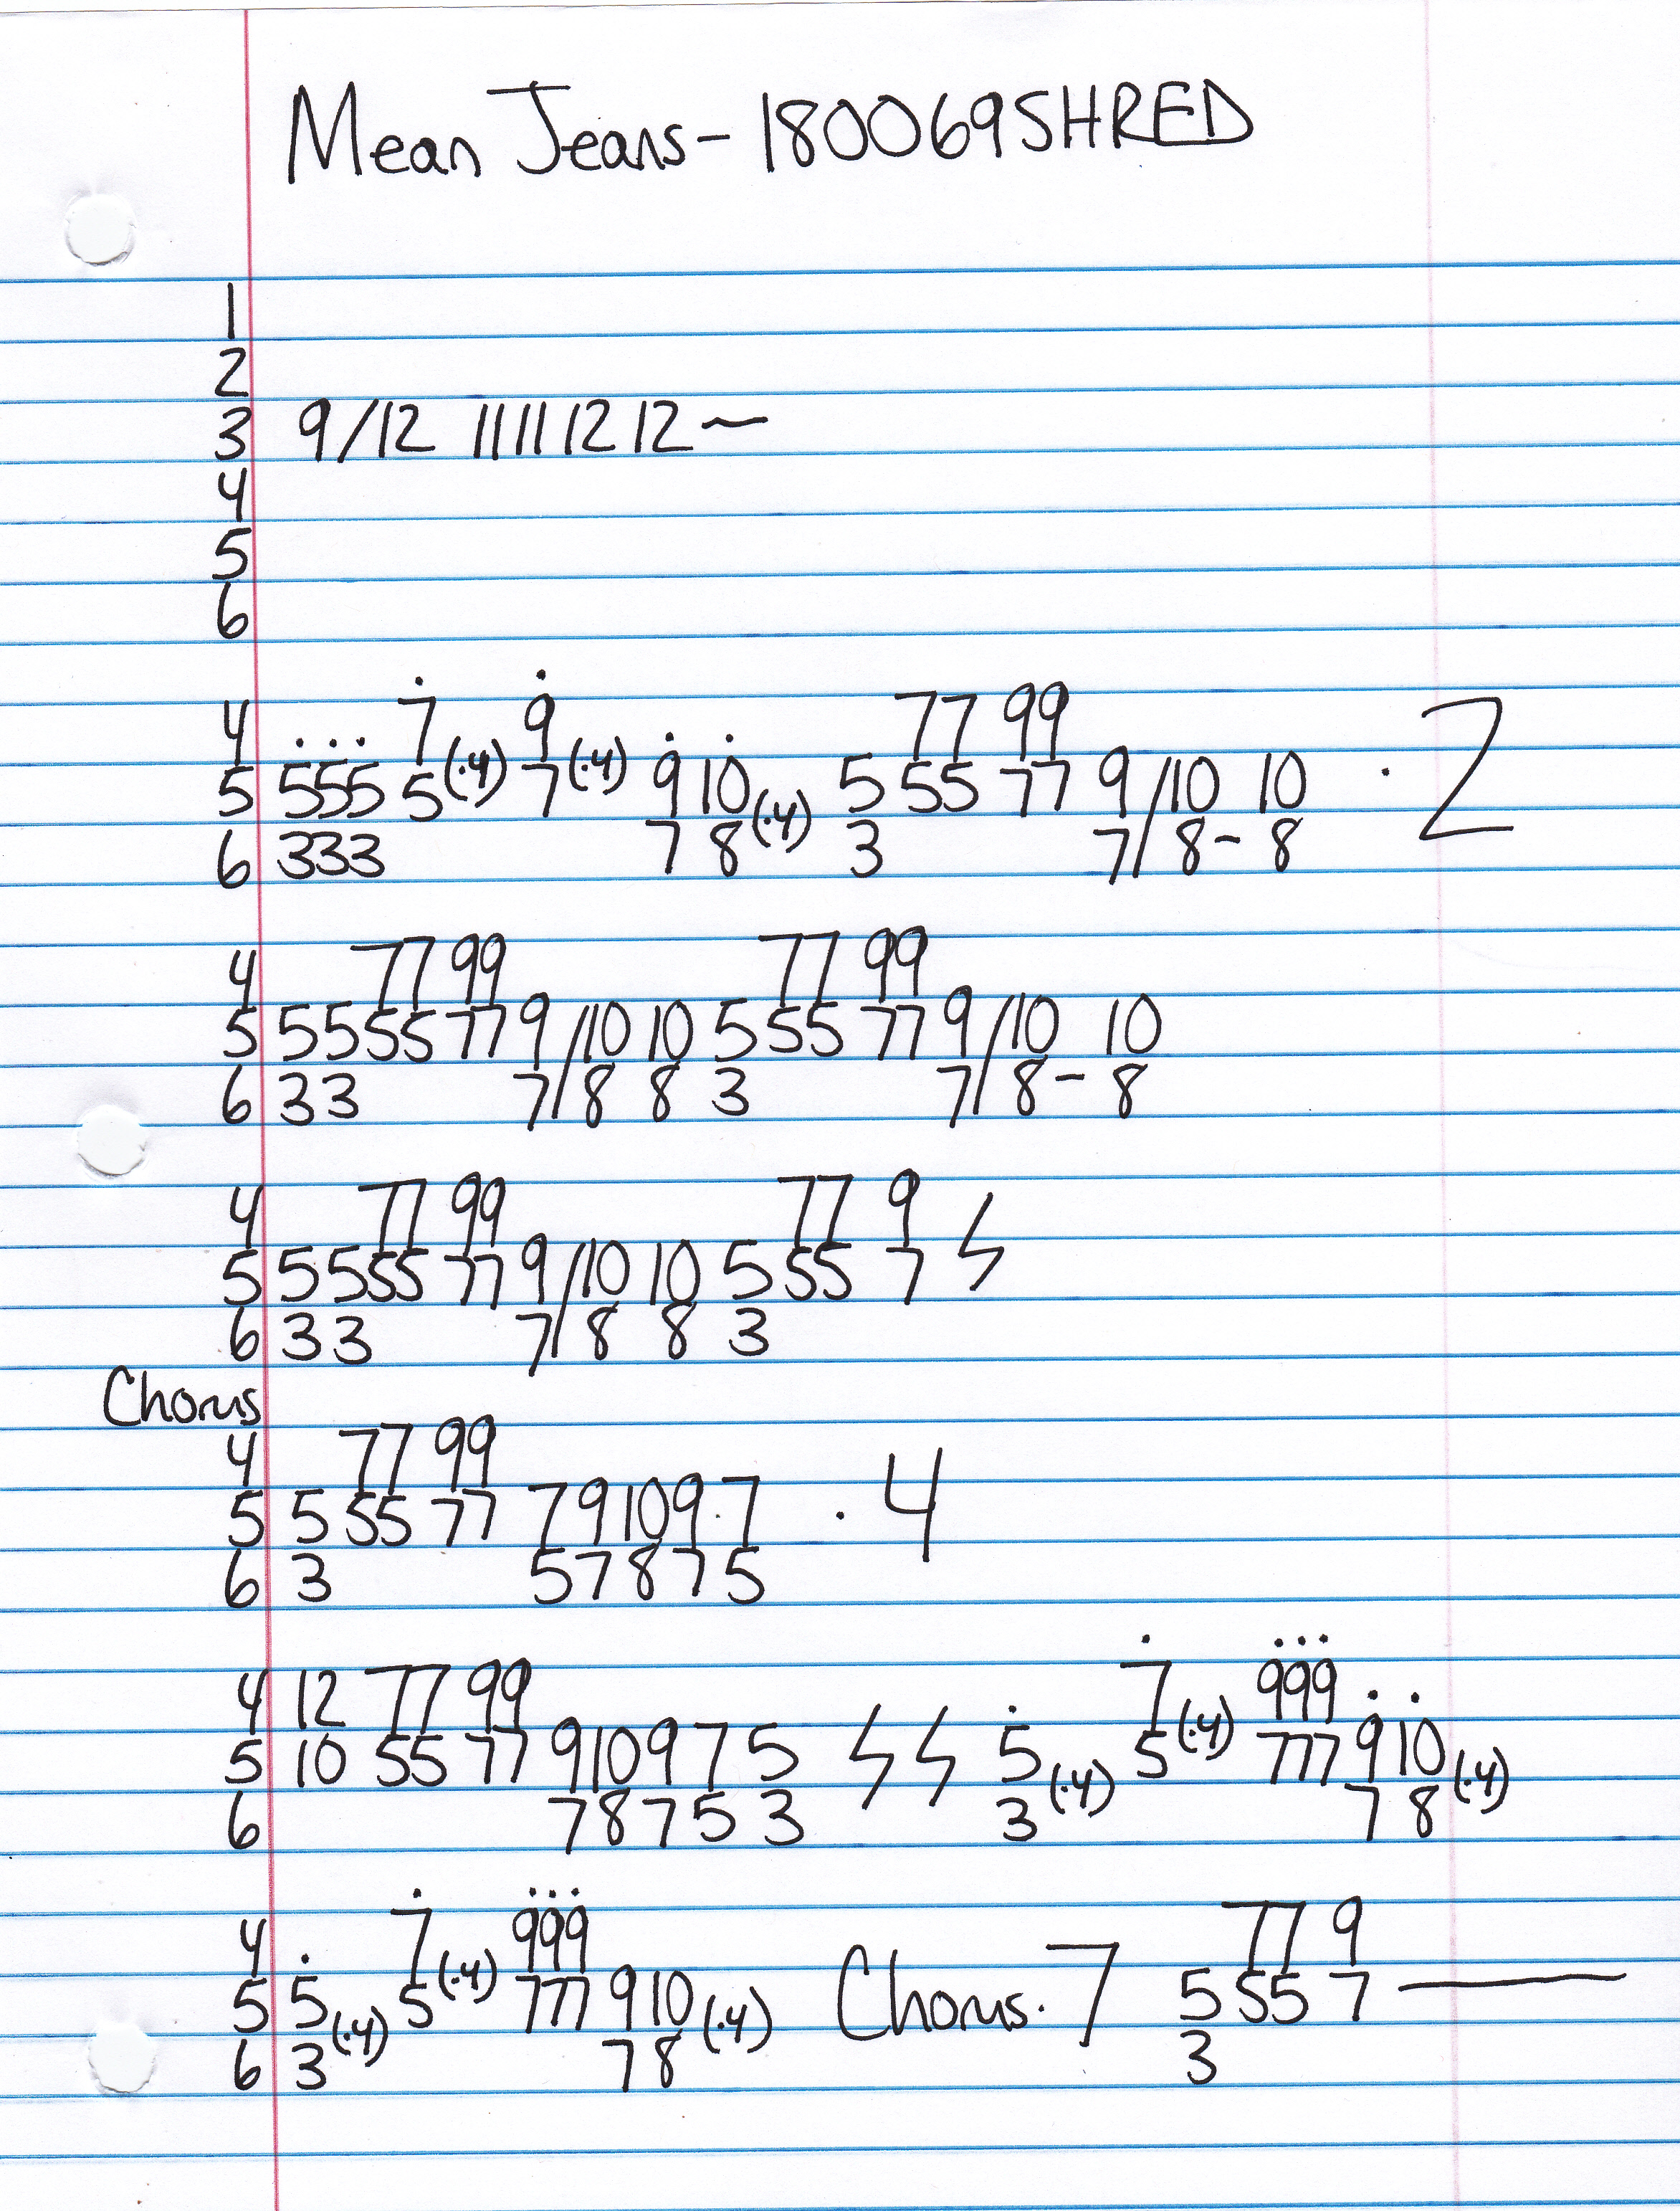 Mean Jeans - 180069SHRED
1
2
3 9/12 11 11 12 12~
4
5
6
4 7 9 77 99
5 555 5(·4) 7(·4) 9 10 5 55 77 9/10 10 · 2
6 333 7 8(·4) 3 7/8- 8
4 77 99 77 99
5 55 55 77 9/10 10 5 55 77 9/10 10
6 33 7/8 8 3 7/8- 8
4 77 99 77 9
5 55 55 77 9/10 10 5 55 7
6 33 7/8 8 3
Chorus
4 77 99
5 5 55 77 7 9 10 9·7 · 4
6 3 5 7 8 7 5
4 12 77 99 7 999
5 10 55 77 9 10 9 7 5 5 5(·4) 777 9 10
6 7 8 7 5 3 3(·4) 7 8(·4)
4 7 999 77 9
5 5 5(·4) 777 9 10 Chorus·7 5 55 7—
6 3(·4) 7 8(·4) 3